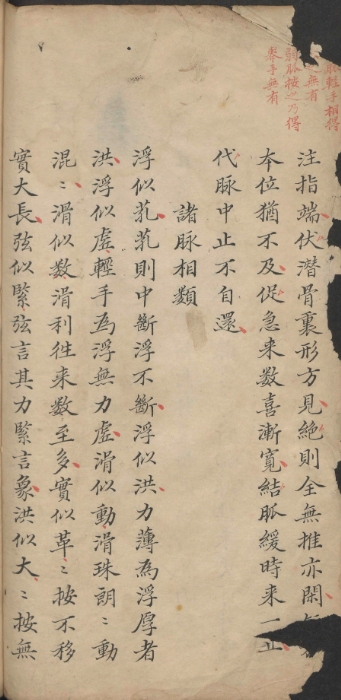 脈輕手相得
無有
弱脈按之乃得
舉手無有
注指端伏潛骨裏形方見絕則全無推亦閑
夲位猶不及促急来数喜漸寬結脈緩時来一止
代脉中止不自還
諸脉相類
浮似芤芤則中斷浮不斷浮似洪力薄為浮厚者
洪浮似虛輕手為浮無力虛滑似動滑珠朗〻動
混〻滑似数滑利往来数至多實似革〻按不移
實大長弦似緊弦言其力緊言象洪似大〻按無